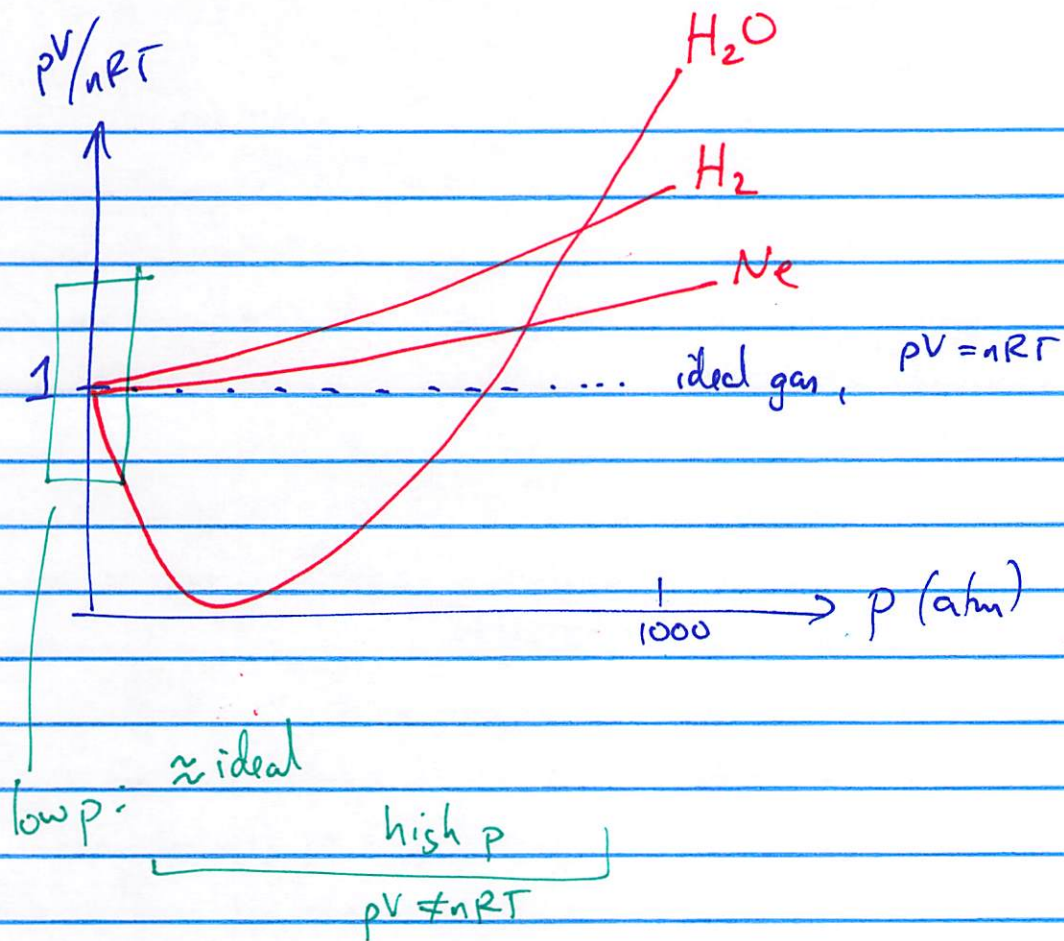 pV/nRT
H₂O
H₂
Ne
1
ideal gas, pV = nRT
1000
p (atm)
low p: ≈ ideal
high p
pV ≠ nRT